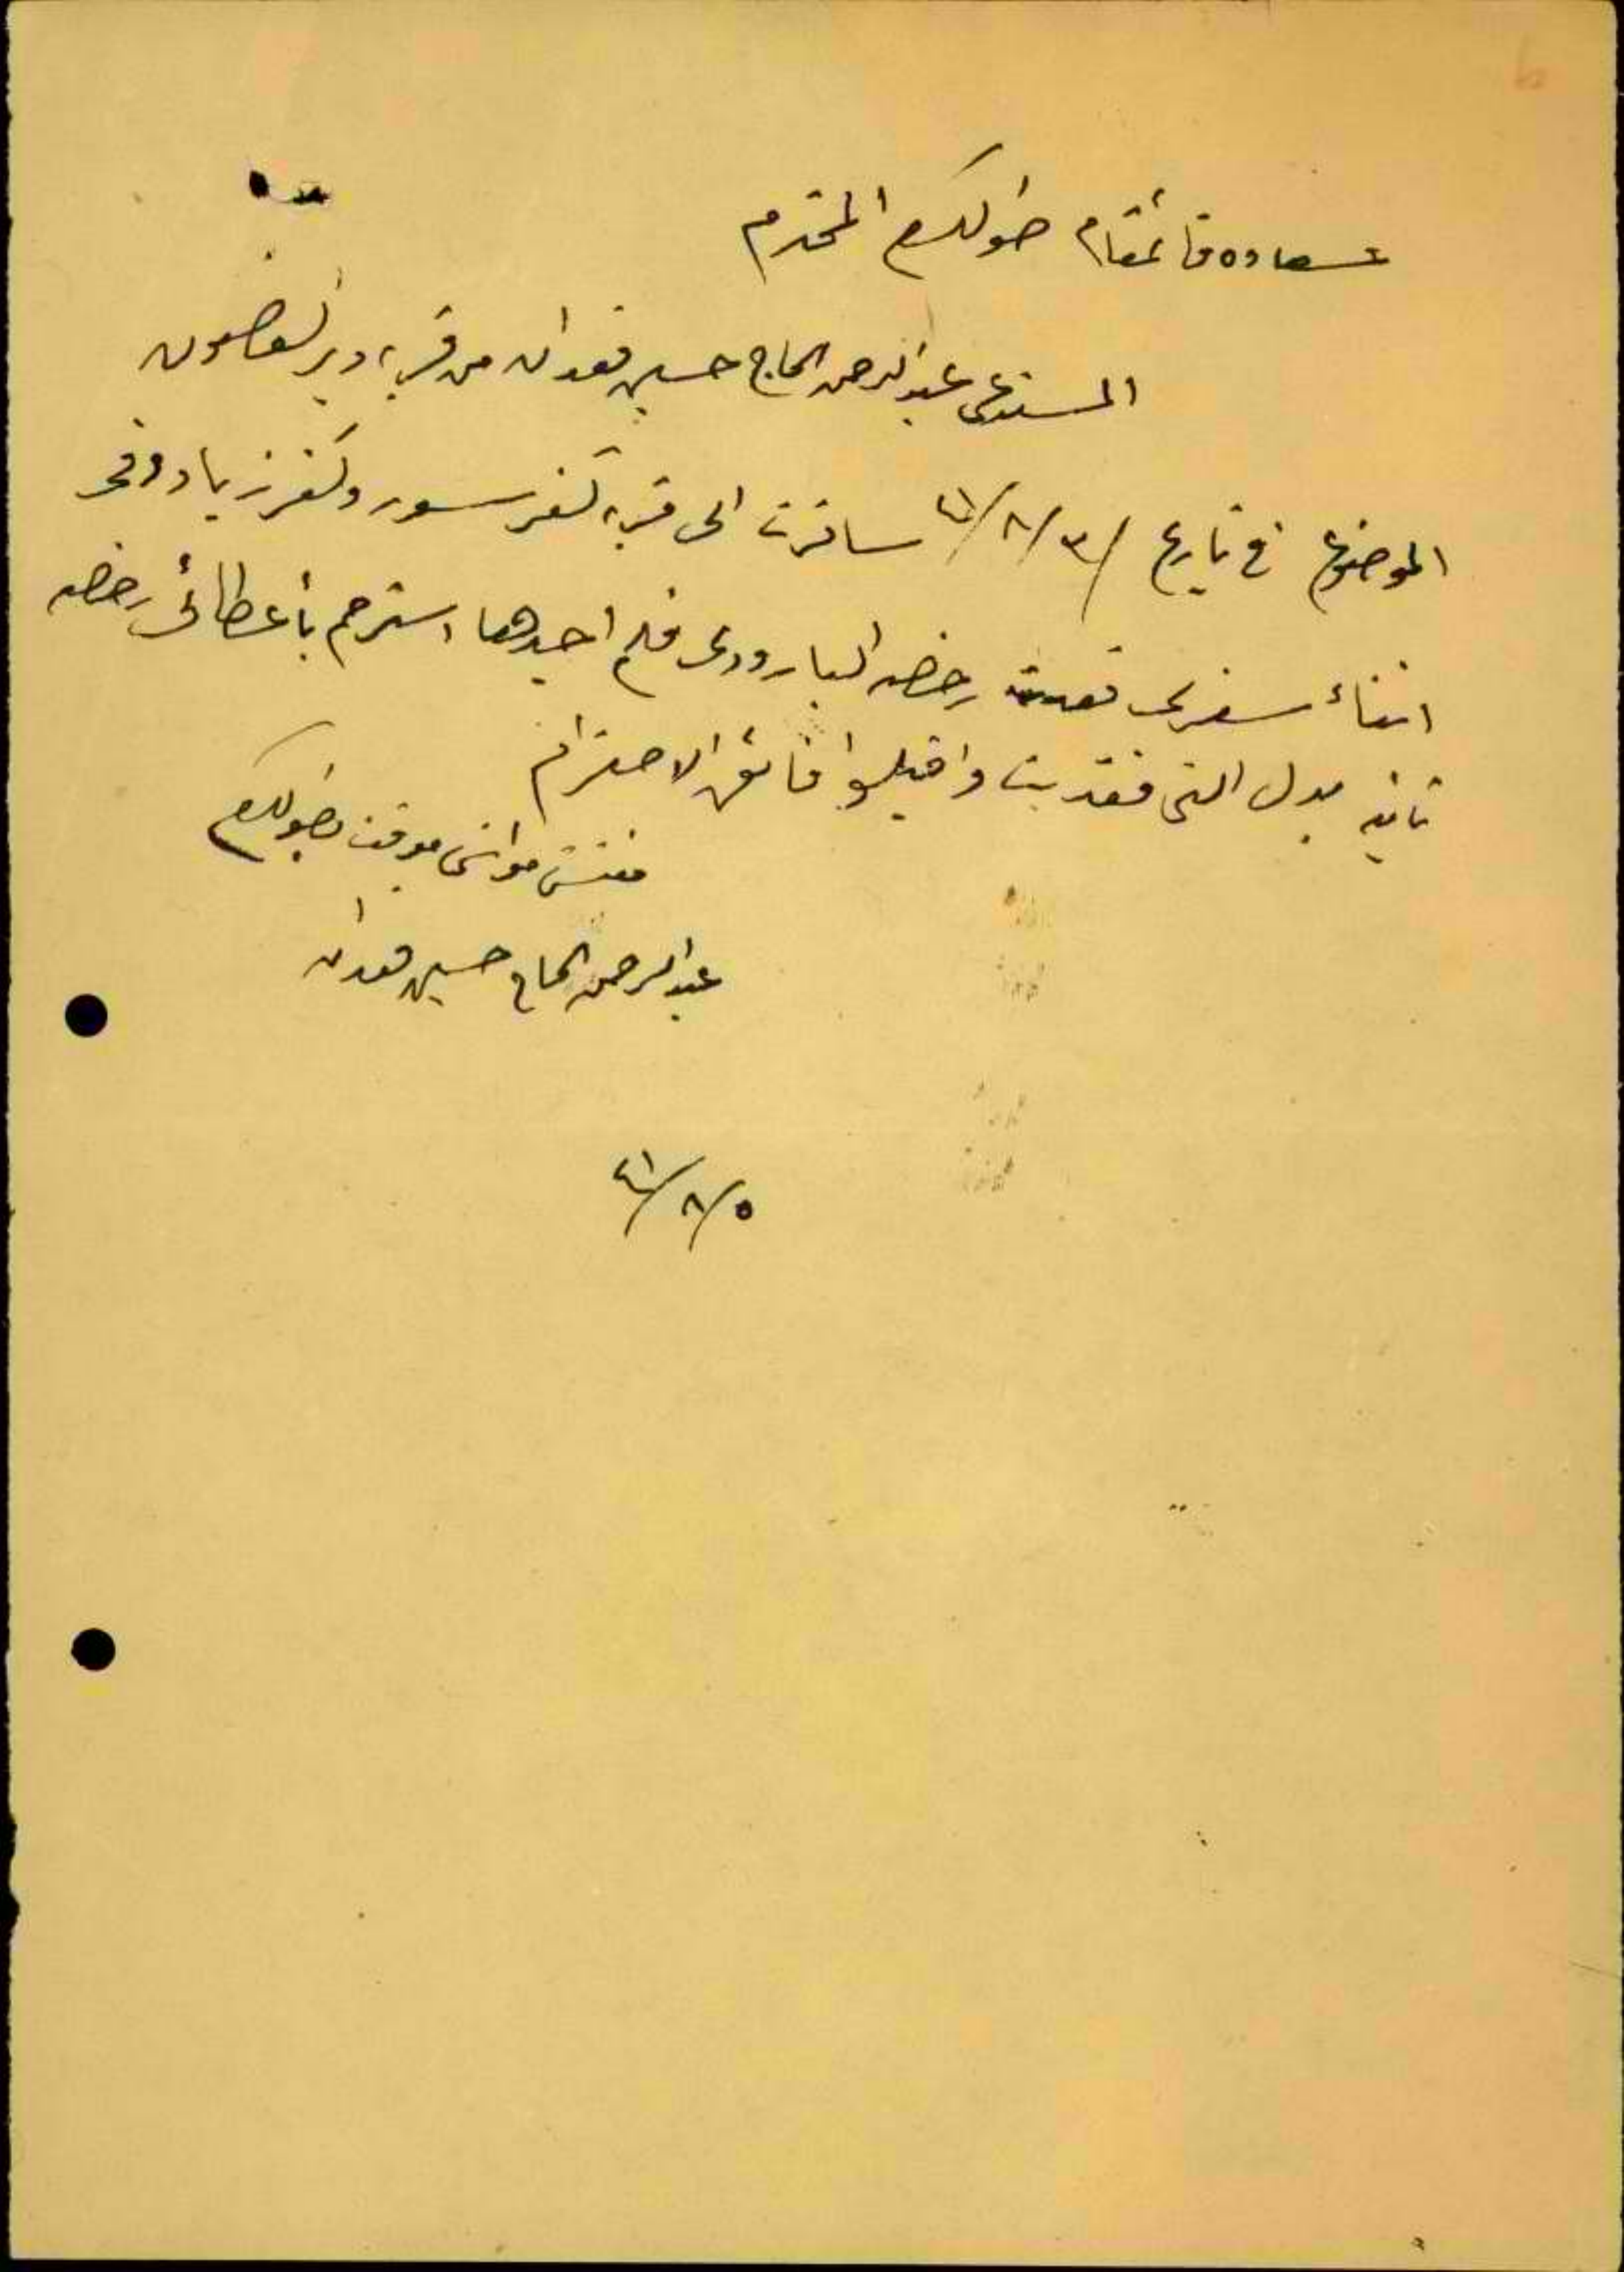 سعاده قائمقام طولكرم المحترم
المستدعى عبد الرحمن الحاج حسين قعدان من قرية دير الغصون
الموضوع في تاريخ ٣/٨/٤١ سافرت الى قرية كفر سور وكفر زباد وفى
اثناء سفرى فقدت رخصه البارودى فلم اجدها استرحم بأعطائى رخصه
ثانيه بدل التى فقدت واقبلوا فائق الاحترام
مفتش مواشى موقت بطولكرم
عبد الرحمن الحاج حسين قعدان
٥/٨/٤١